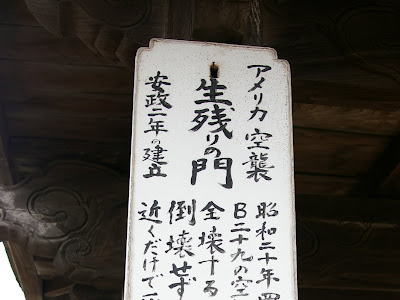 アメリカ空襲
生残りの門
安政二年の建立
昭和二十年四
B二十九の空
全壊する
倒壊せず
近くだけで